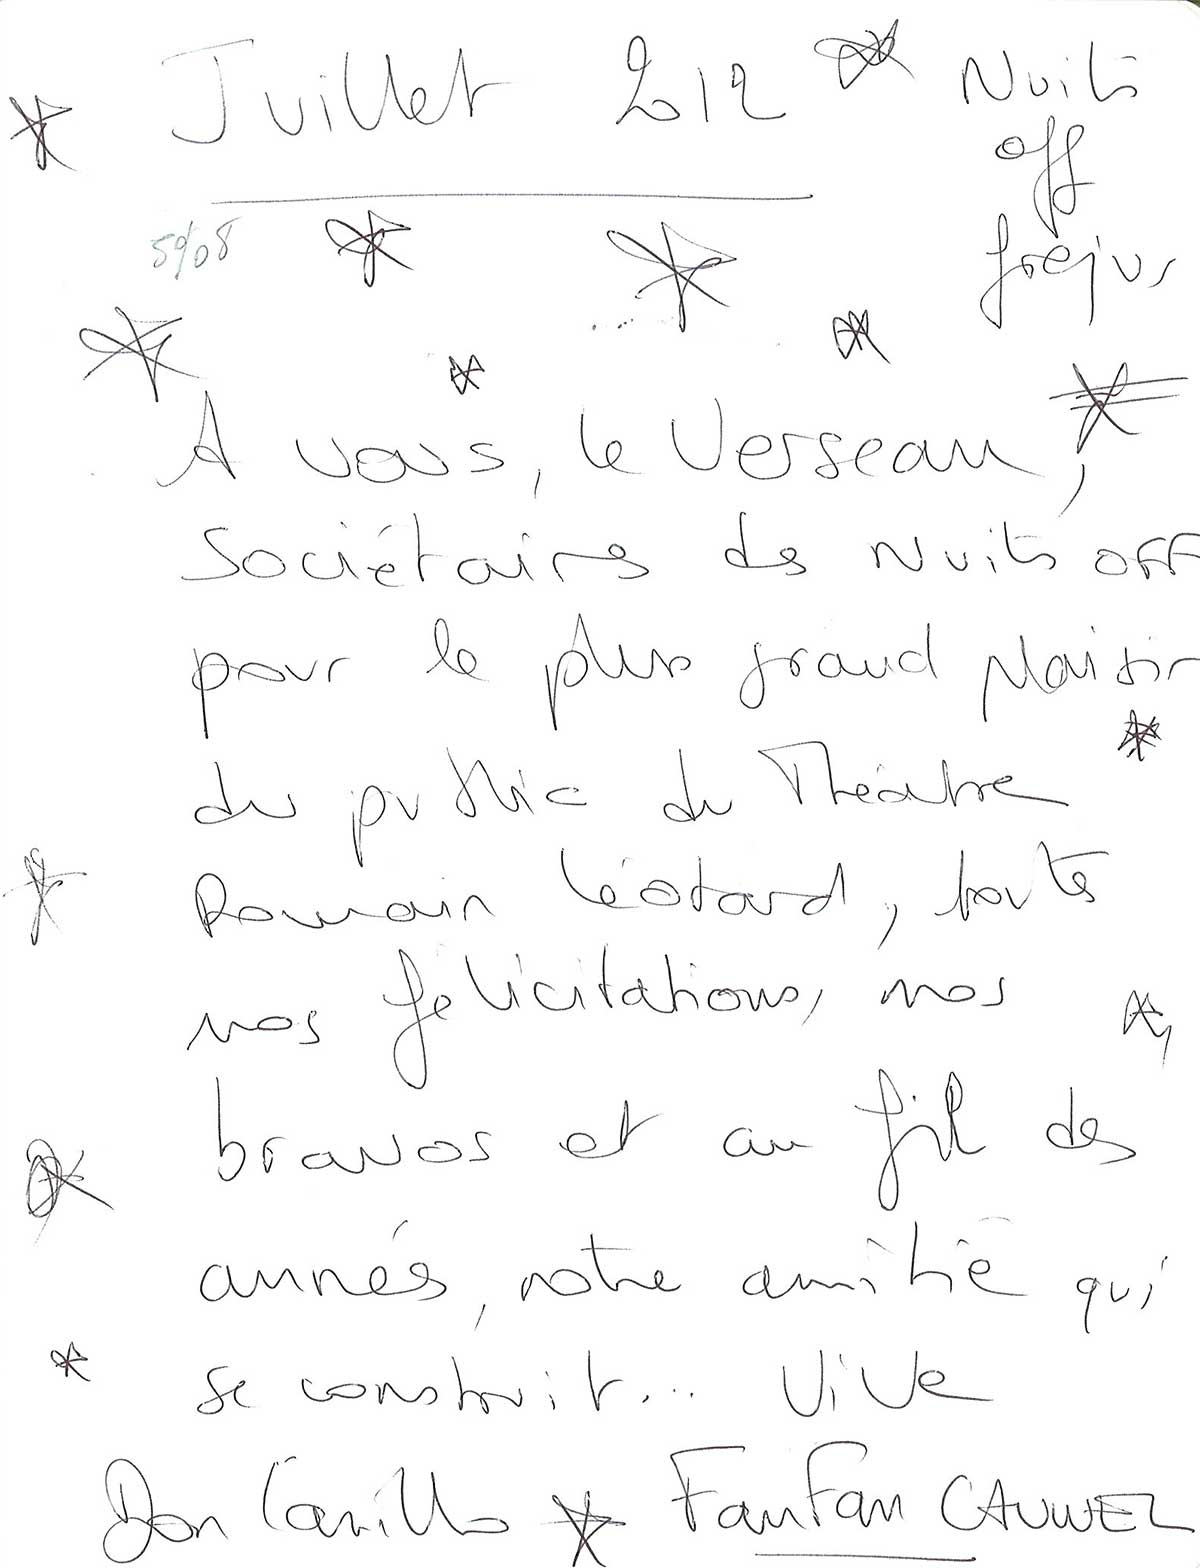 Juillet 2012
Nuits
off
frejus
A vous, le Verseau,
Sociétaires des Nuits OFF
pour le plus grand plaisir
du public du Théâtre
Romain Léotard, toutes
nos félicitations, nos
bravos et au fil des
années, notre amitié qui
se construit... Vive
Don Camillo FanFan CAUWEL